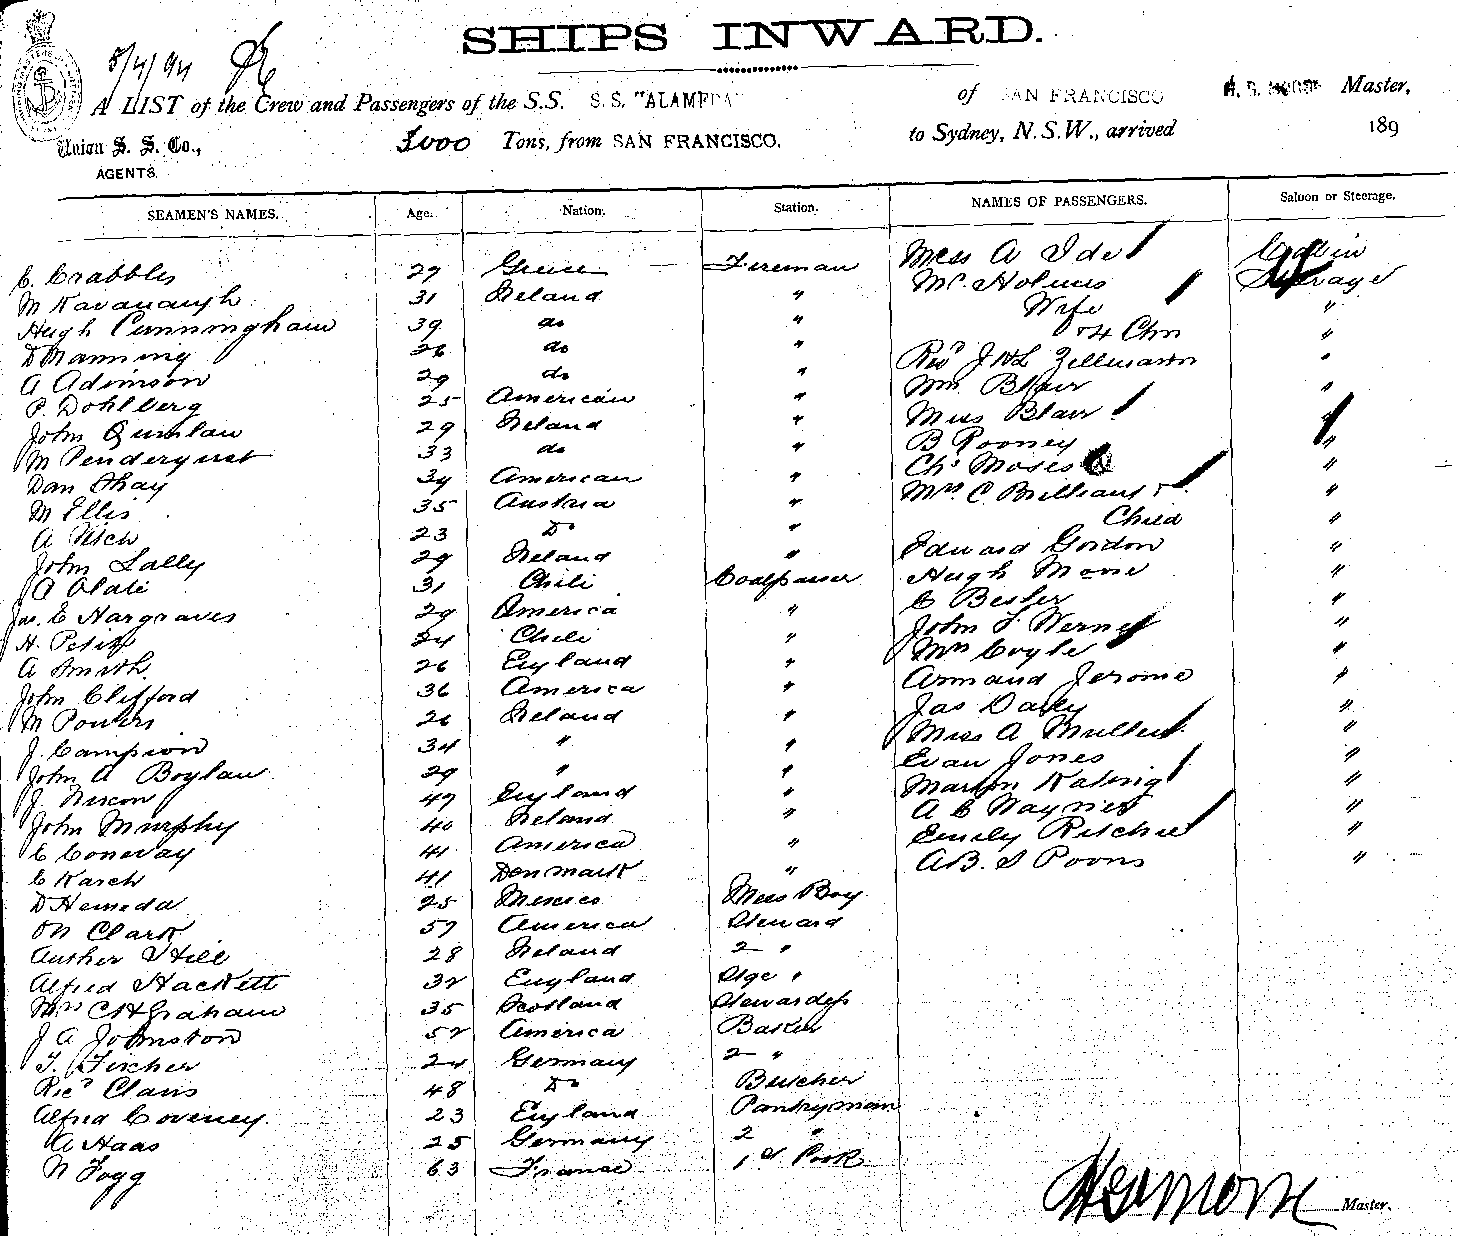 SHIPS INWARD.
8/4/94
A LIST of the Crew and Passengers of the S.S. S.S. "ALAMEDA" of SAN FRANCISCO Master,
Union S. S. Co., 3000 Tons, from SAN FRANCISCO, to Sydney, N.S.W., arrived 189
AGENTS.
SEAMEN'S NAMES. Age. Nation. Station. NAMES OF PASSENGERS. Saloon or Steerage.
C. Crabbles 27 Greece Fireman Miss A Ide Cabin
M Kavanaugh 31 Ireland " Mr. Holmes Steerage
Hugh Cunningham 39 do " Wife "
D Manning 26 do " & 4 Chn "
A Adimson 29 do " Revd J H L Zillmann "
P. Dohlberg 25 American " Wm Blair "
John Quinlan 29 Ireland " Miss Blair "
M Pendergast 33 do " B Rooney "
Dan Shay 34 American " Chs Moses "
M Ellis 35 Austria " Mrs C Brilliant & "
A Nich 23 Do " Child "
John Lally 29 Ireland " Edward Gordon "
A Olate 31 Chili Coalpasser Hugh Mone "
Jas. E Hargraves 29 America " C Besler "
H. Petit 24 Chili " John F Werney "
A Smith. 26 England " Mrs Coyle "
John Clifford 36 America " Armand Jerome "
M Powers 26 Ireland " Jas Daley "
J. Campion 34 " " Miss A Mullen "
John A Boylan 29 " " Evan Jones "
J. Nixon 47 England " Martin "
John Murphy 40 Ireland " A C "
C Coneway 41 America " Emily Ritchie "
C Karch 41 Denmark " A B. S Poons "
D Hemeda 25 Mexico Mess Boy
M Clark 57 America Steward
Auther S Hill 28 Ireland 2 "
Alfred Hackett 32 England Stge "
Mrs C H Graham 35 Scotland Stewardess
J A Johnston 52 America Baker
T. Fircher 24 Germany 2 "
Ricd Claus 48 Do Butcher
Alfred Coveney. 23 England Pantryman
A Haas 25 Germany 2 "
N Fogg 63 France 1st Cook
Master.